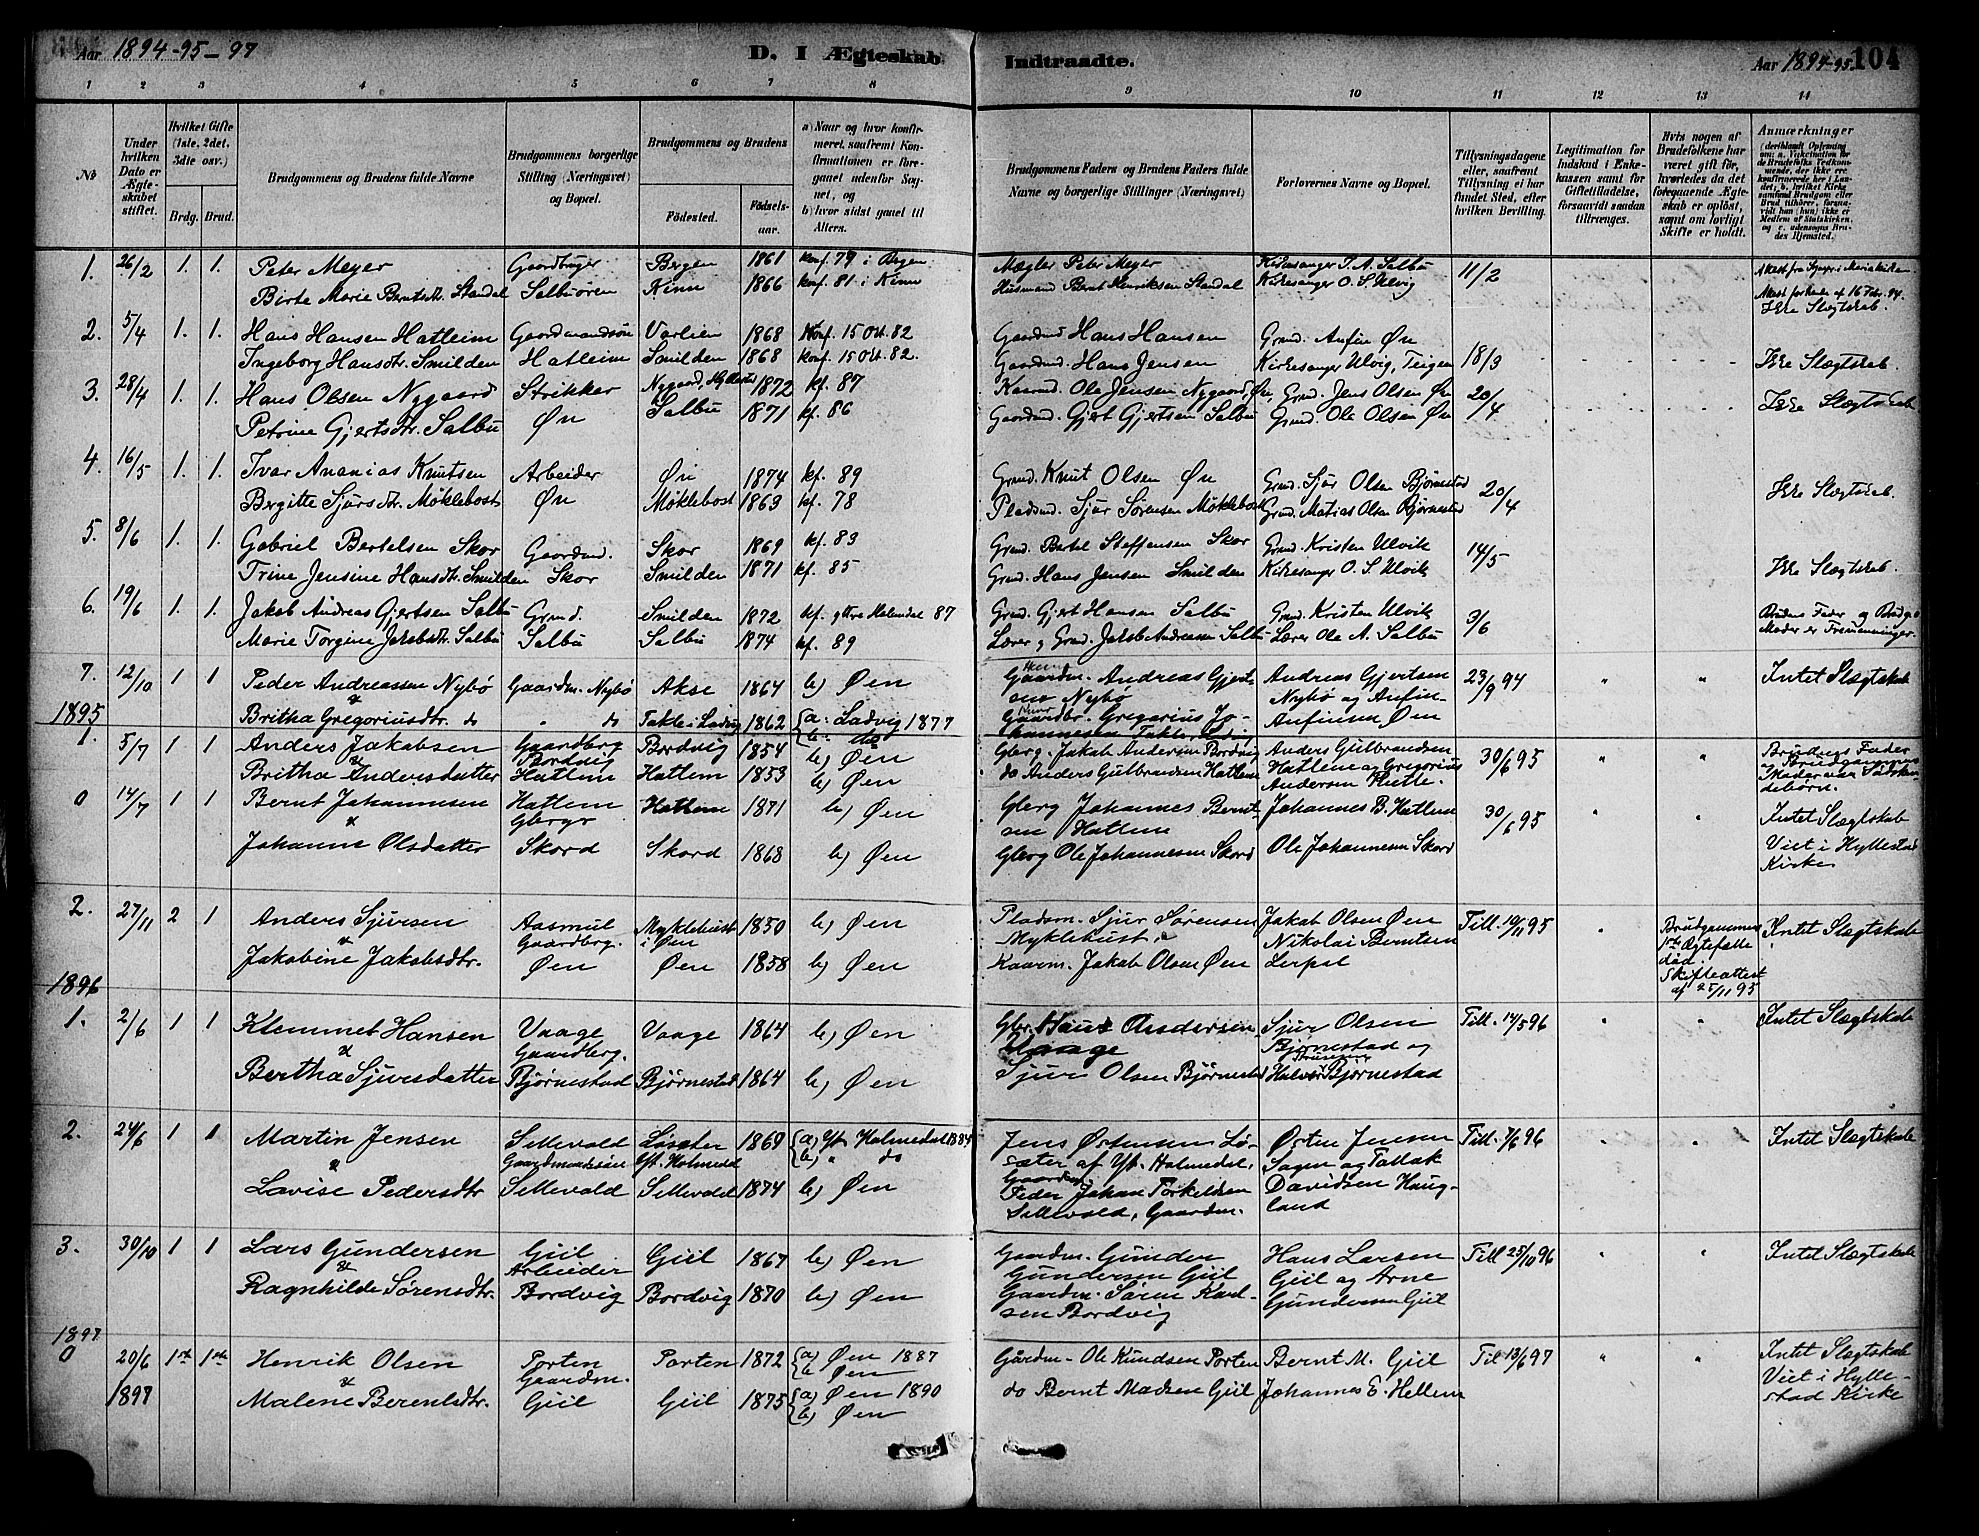 Aar 1894-95-97
D. I Ægteskab
Indtraadte.
Aar 1894-95. 104
1 2 3 4 5 6 7 8 9 10 11 12 13 14
No
Under hvilken Dato er Ægteskabet stiftet.
Hvilket Gifte (1ste, 2det, 3die osv.)
Brdg. Brud.
Brudgommens og Brudens fulde Navne
Brudgommens borgerlige Stilling (Næringsvei) og Bopæl.
Brudgommens og Brudens
Födested.
Födselsaar.
a) Naar og hvor konfirmeret, saafremt Konfirmationen er foregaaet udenfor Sognet, og
b) hvor sidst gaaet til Alters.
Brudgommens Faders og Brudens Faders fulde Navne og borgerlige Stillinger (Næringsvei)
Forlovernes Navne og Bopæl.
Tillysningsdagene eller, saafremt Tillysning ei har fundet Sted, efter hvilken Bevilling.
Legitimation for Indskud i Enkekassen samt for Giftetilladelse, forsaavidt saadan tiltrænges.
Hvis nogen af Brudefolkene har været gift för, hvorledes da det foregaaende Ægteskab er oplöst, samt om lovligt Skifte er holdt.
Anmærkninger
1. 26/2 1. 1. Peter Meyer Gaardbruger Bergen 1861 konf. 79 i Bergen Mægler Peter Meyer Kirkesanger J. A. Salbu 11/2
Birte Marie Berntsdtr. Standal Salbuören Kinn 1866 konf. 81 i Kinn Husmand Bernt Henriksen Standal Kirkesanger O. S. Ulvig Ikke Slægtskab.
2. 5/4 1. 1. Hans Hansen Hatleim Gaardmandssön Varlien 1868 Konf. 15 Okt. 82 Gaardmd Hans Hansen Grmd. Anfin Øn
Ingeborg Hansdtr. Smilden Hatleim Smilden 1868 konf. 15 Okt. 82. Gaardmd. Hans Jensen Kirkesanger Ulvig, Teigen 18/3 Ikke Slægtskab.
3. 28/4 1. 1. Hans Olsen Nygaard Strikker Nygaard, Hyllestad 1872 kf. 87 Kaarmd. Ole Jensen Nygaard, Øn, Grmd. Jens Olsen Øn 20/4 Ikke Slægtskab
Petrine Gjertsdtr. Salbu Øn Salbu 1871 kf. 86 Gaardmd. Gjert Gjertsen Salbu Grmd. Ole Olsen Øn
4. 16/5 1. 1. Ivar Ananias Knutsen Arbeider Øn 1874 kf. 89 Grmd. Knut Olsen Øn Grmd. Sjur Olsen Bjørnestad 20/4 Ikke Slægtskab.
Bergitte Sjursdtr. Möklebost Øn Möklebost 1863 kf. 78 Pladsmd. Sjur Sörensen Möklebost Grmd. Matias Olsen Bjørnestad
5. 8/6 1. 1. Gabriel Bertelsen Skor Gaardmd. Skor 1869 kf. 83 Grmd. Bertel Steffensen Skor Grmd. Kristen Ulvik 14/5
Trine Jensine Hansdtr. Smilden Skor Smilden 1871 kf. 85 Grmd. Hans Jensen Smilden Kirkesanger O. S. Ulvik Ikke Slægtskab.
6. 19/6 1. 1. Jakob Andreas Gjertsen Salbu Grmd. Smilden 1872 kf. Yttre Holmedal 87 Grmd. Gjert Hansen Salbu Grmd. Kristen Ulvik 3/6 Brudens Fader og Brudg.s
Marie Torgine Jakobsdtr. Salbu Salbu Salbu 1874 kf. 89 Lærer, Grmd. Jakob Andreassen Salbu Lærer Ole A. Salbu Moder er Fremenninger.
7. 12/10 1 1 Peder Andreassen Nybö Gaardm. Nybö Akse 1864 b) Øen Gaardm. Andreas Gjertsen Nybö Andreas Gjertsen Nybö og Anfin Anfinsen Øen 23/9 94 " " Intet Slægtskab
& Britha Gregoriusdtr. do " do Takle i Ladvig 1862 a: Ladvig 1877 b: do Gaardbr. Gregorius Johannesen Takle, Ladvig
1895
1. 5/7 1 1 Anders Jakobsen Gaardbrg Bordvig Bordvig 1854 b) Øen Gbrg. Jakob Andersen Bordvig Anders Gulbrandsen 30/6 95 " " Brudens Fader og Brudgommens Moder ere Södskendebörn.
& Britha Andersdatter Hatlem Hatlem 1853 b) Øen do Anders Gulbrandsen Hatlem Hatlem og Gregorius Andersen Hatle.
0 14/7 1 1 Bernt Johannesen Hatlem Gbrgr Hatlem 1871 b) Øen Gbrg Johannes Berntsen Hatlem Johannes B. Hatlem 30/6 95 " " Intet Slægtskab
& Johanne Olsdatter Skord Skord 1868 b) Øen Gbrg Ole Johannesen Skord Ole Johannesen Skord Viet i Hyllestad Kirke
2. 27/11 2 1 Anders Sjursen Aasmul Gaardbrg. Myklebust i Øen 1850 b) Øen Pladsm. Sjur Sörensen Myklebust. Jakob Olsen Øen Till. 10/11 95 " Brudgommens 1ste Ægtefælle död. Skifteattest af 25/11 95 Intet Slægtskab
& Jakobine Jakobsdtr. Øen Øen 1858 b) Øen Kaarm. Jakob Olsen Øen Nikolai Berntsen Lerpol
1896
1. 2/6 1 1 Klemmet Hansen Vaage Gaardbrg. Vaage 1864 b) Øen Gbr. Hans Andersen Vaage Sjur Olsen Bjørnestad og Till. 14/5 96 " " Intet Slægtskab
& Bertha Sjursdatter Bjørnestad Bjørnestad 1864 b) Øen Sjur Olsen Bjørnestad Halvor Bjørnestad
2. 24/6 1 1 Martin Jensen Sellevold Gaardmandssön Løseter Yt. Holmedal 1869 a) Yt. Holmedal 1884 b) " do Jens Østensen Lösæter af Yt. Holmedal. Østen Jensen Sagen og Tallak Davidsen Haugland Till. 7/6 96 " " Intet Slægtskab
& Lavise Pedersdtr Sellevold Sellevold 1874 b) Øen Gaardm. Peder Johan Torkildsen Sellevold, Gaardm.
3. 30/10 1 1 Lars Gundersen Giil Arbeider Giil 1867 b) Øen Gaardm. Gunder Gundersen Giil Hans Larsen Giil og Arne Gundersen Giil Till 25/10 96 " " Intet Slægtskab
& Ragnhilde Sörensdtr. Bordvig Bordvig 1870 b) Øen Gaardm. Sören Karlsen Bordvig
1897
0 20/6 1897 1ste 1ste Henrik Olsen Porten Gaardm. Porten 1872 a) Øen 1887 b) Øen Gårdm. Ole Knudsen Porten Bernt M. Giil Til 13/6 97 " " Intet Slægtskab Viet i Hyllestad Kirke
& Malene Berentsdtr. Giil Giil 1875 a) Øen 1890 b) Øen do Bernt Madsen Giil Johannes E. Hellem